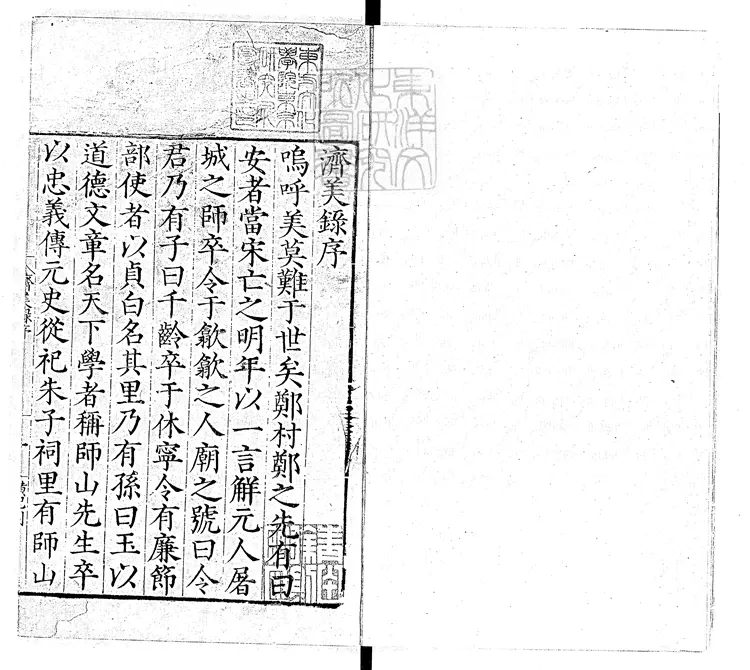 東方文化
學院東京
研究所
濟美錄序
嗚呼美莫難于世矣鄭村鄭之先有曰
安者當宋亡之明年以一言觧元人屠
城之師卒令于歙歙之人廟之號曰令
君乃有子曰千齡卒于休寧令有廉節
部使者以貞白名其里乃有孫曰玉以
道德文章名天下學者稱師山先生卒
以忠義傳元史從祀朱子祠里有師山